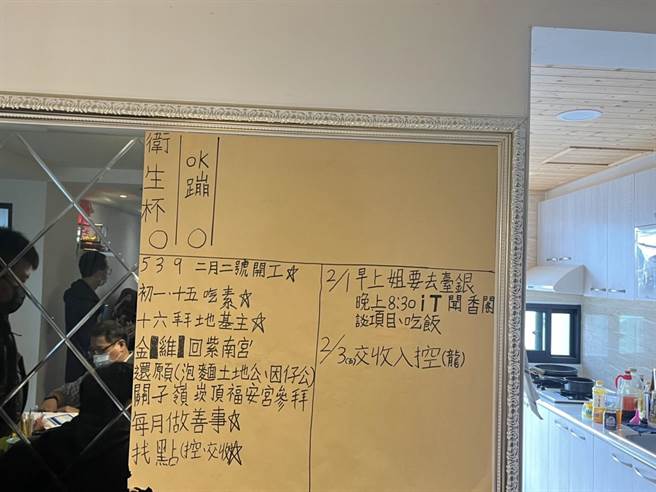 衛生杯○
OK蹦○
539 二月二號開工☆
初一、十五吃素☆
十六拜地基主☆
金雞回紫南宮
還願(泡麵土地公、囡仔公)
關子嶺崁頂福安宮參拜
每月做善事☆
找點(控、交收)☆
2/1早上姐要去臺銀
晚上8:30 iT聞香閣
談項目、吃飯
2/3 交收入控(龍)